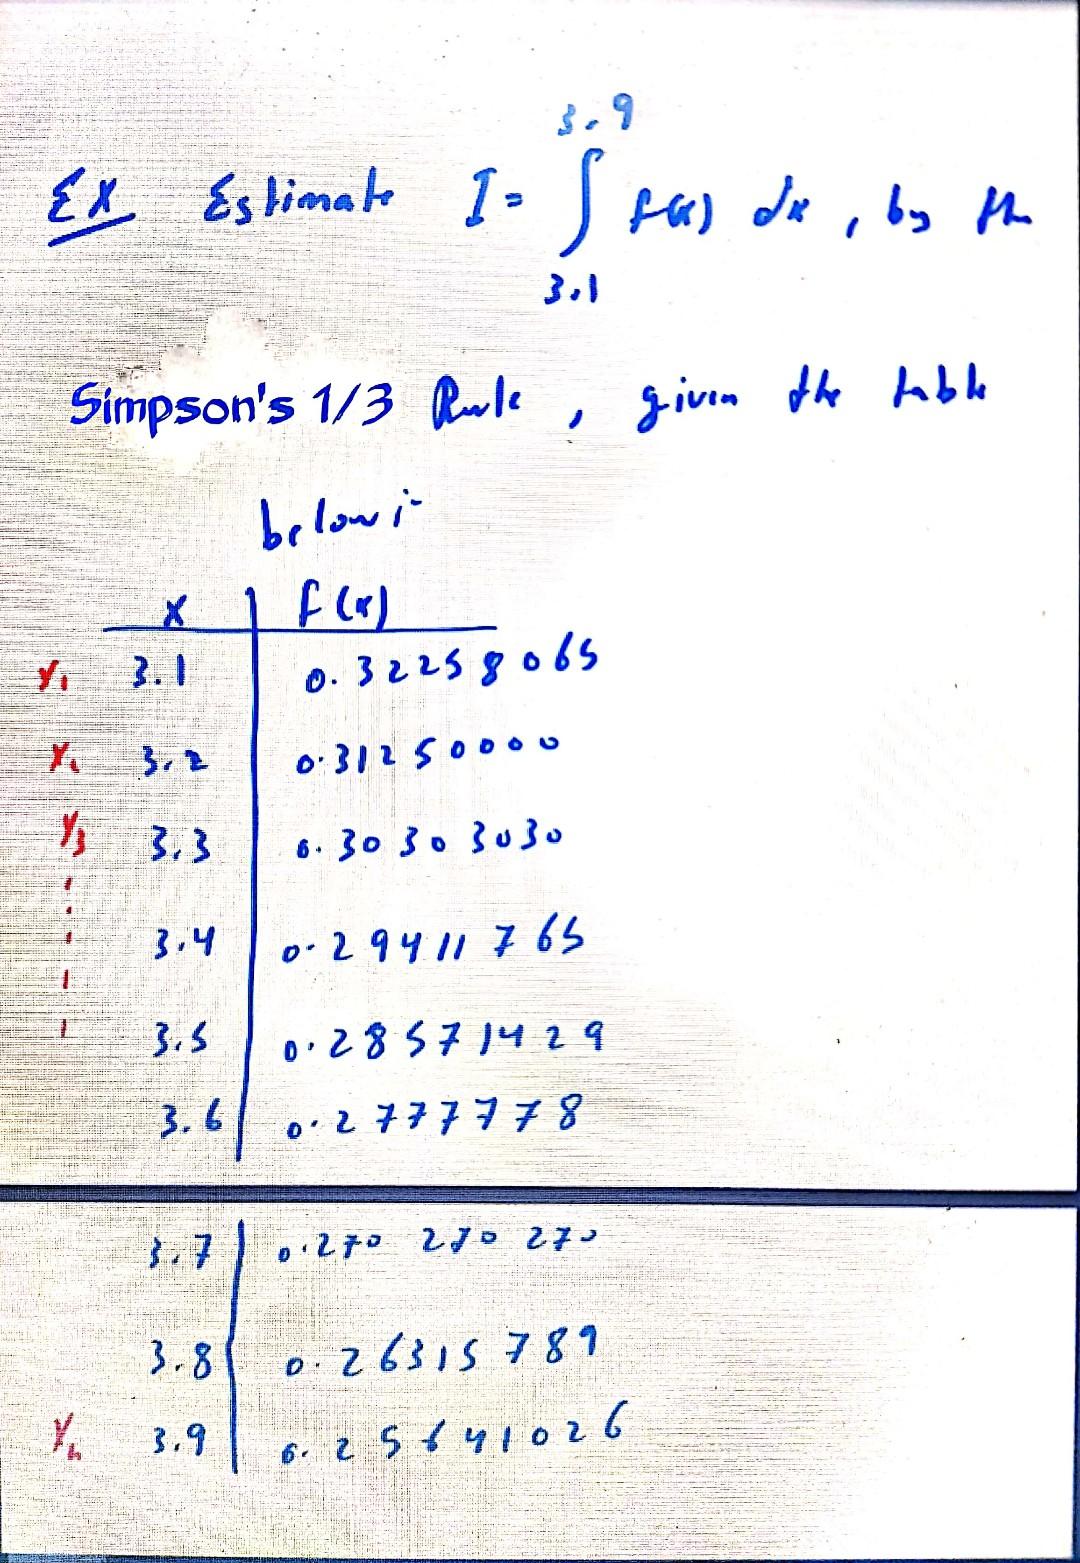 3.9
EX Estimate I = ∫ f(x) dx , by the
3.1
Simpson's 1/3 Rule , given the table
below :-
x f(x)
Y1 3.1 0.32258065
3.2 0.31250000
Y3 3.3 0.30303030
3.4 0.29411765
3.5 0.28571429
3.6 0.2777778
3.7 0.270 270 270
3.8 0.26315789
Yn 3.9 0.25641026